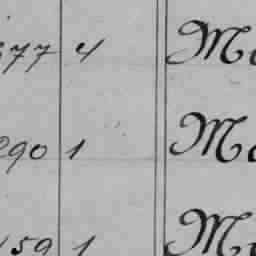 77 4 Mo
290 1 Mo
159 1 Mo